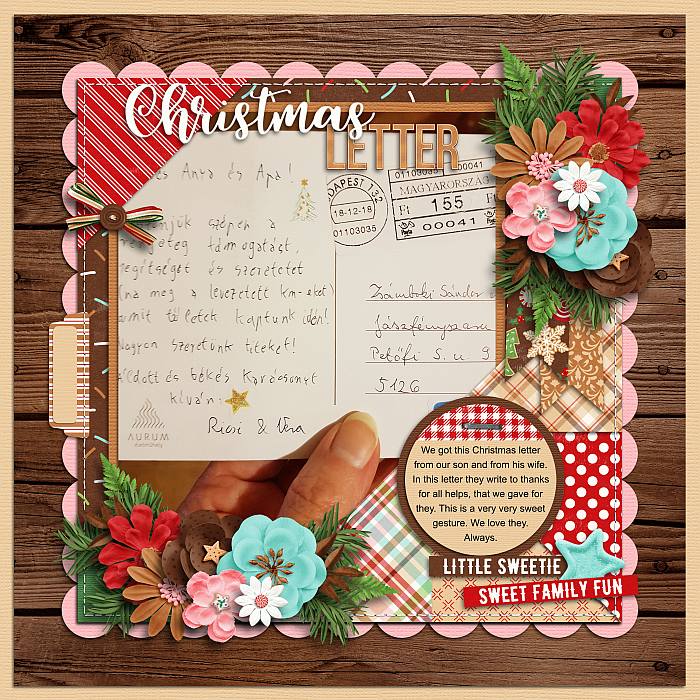 Christmas
LETTER
Anya és Apa!
szépen a
támogatást,
segítséget és szeretetet
(na meg a levezetett km-eket)
amit tőletek kaptunk idén!
Nagyon szeretünk titeket!
Áldott és békés Karácsonyt
kíván:
Ricsi & Vera
AURUM
DAPEST 132
18-12-18
01103035
01103035 00041
MAGYARORSZÁG
Ft 155
00041
Zámboki Sándor
Jászfényszaru
Petőfi S. u. 9
5126
We got this Christmas letter
from our son and from his wife.
In this letter they write to thanks
for all helps, that we gave for
they. This is a very very sweet
gesture. We love they.
Always.
LITTLE SWEETIE
SWEET FAMILY FUN